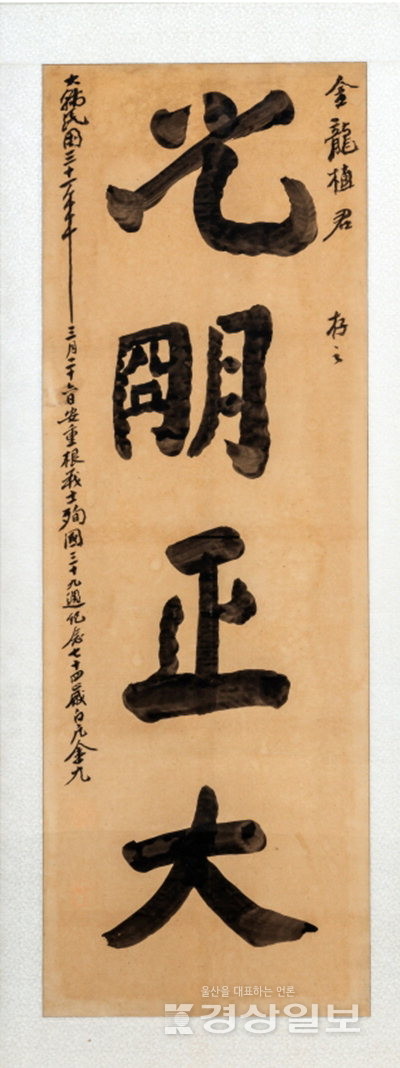 金龍植君 存之
光明正大
大韓民國三十一年三月二十六日安重根義士殉國三十九週紀念七十四歲白凡金九
울산을 대표하는 언론
경상일보